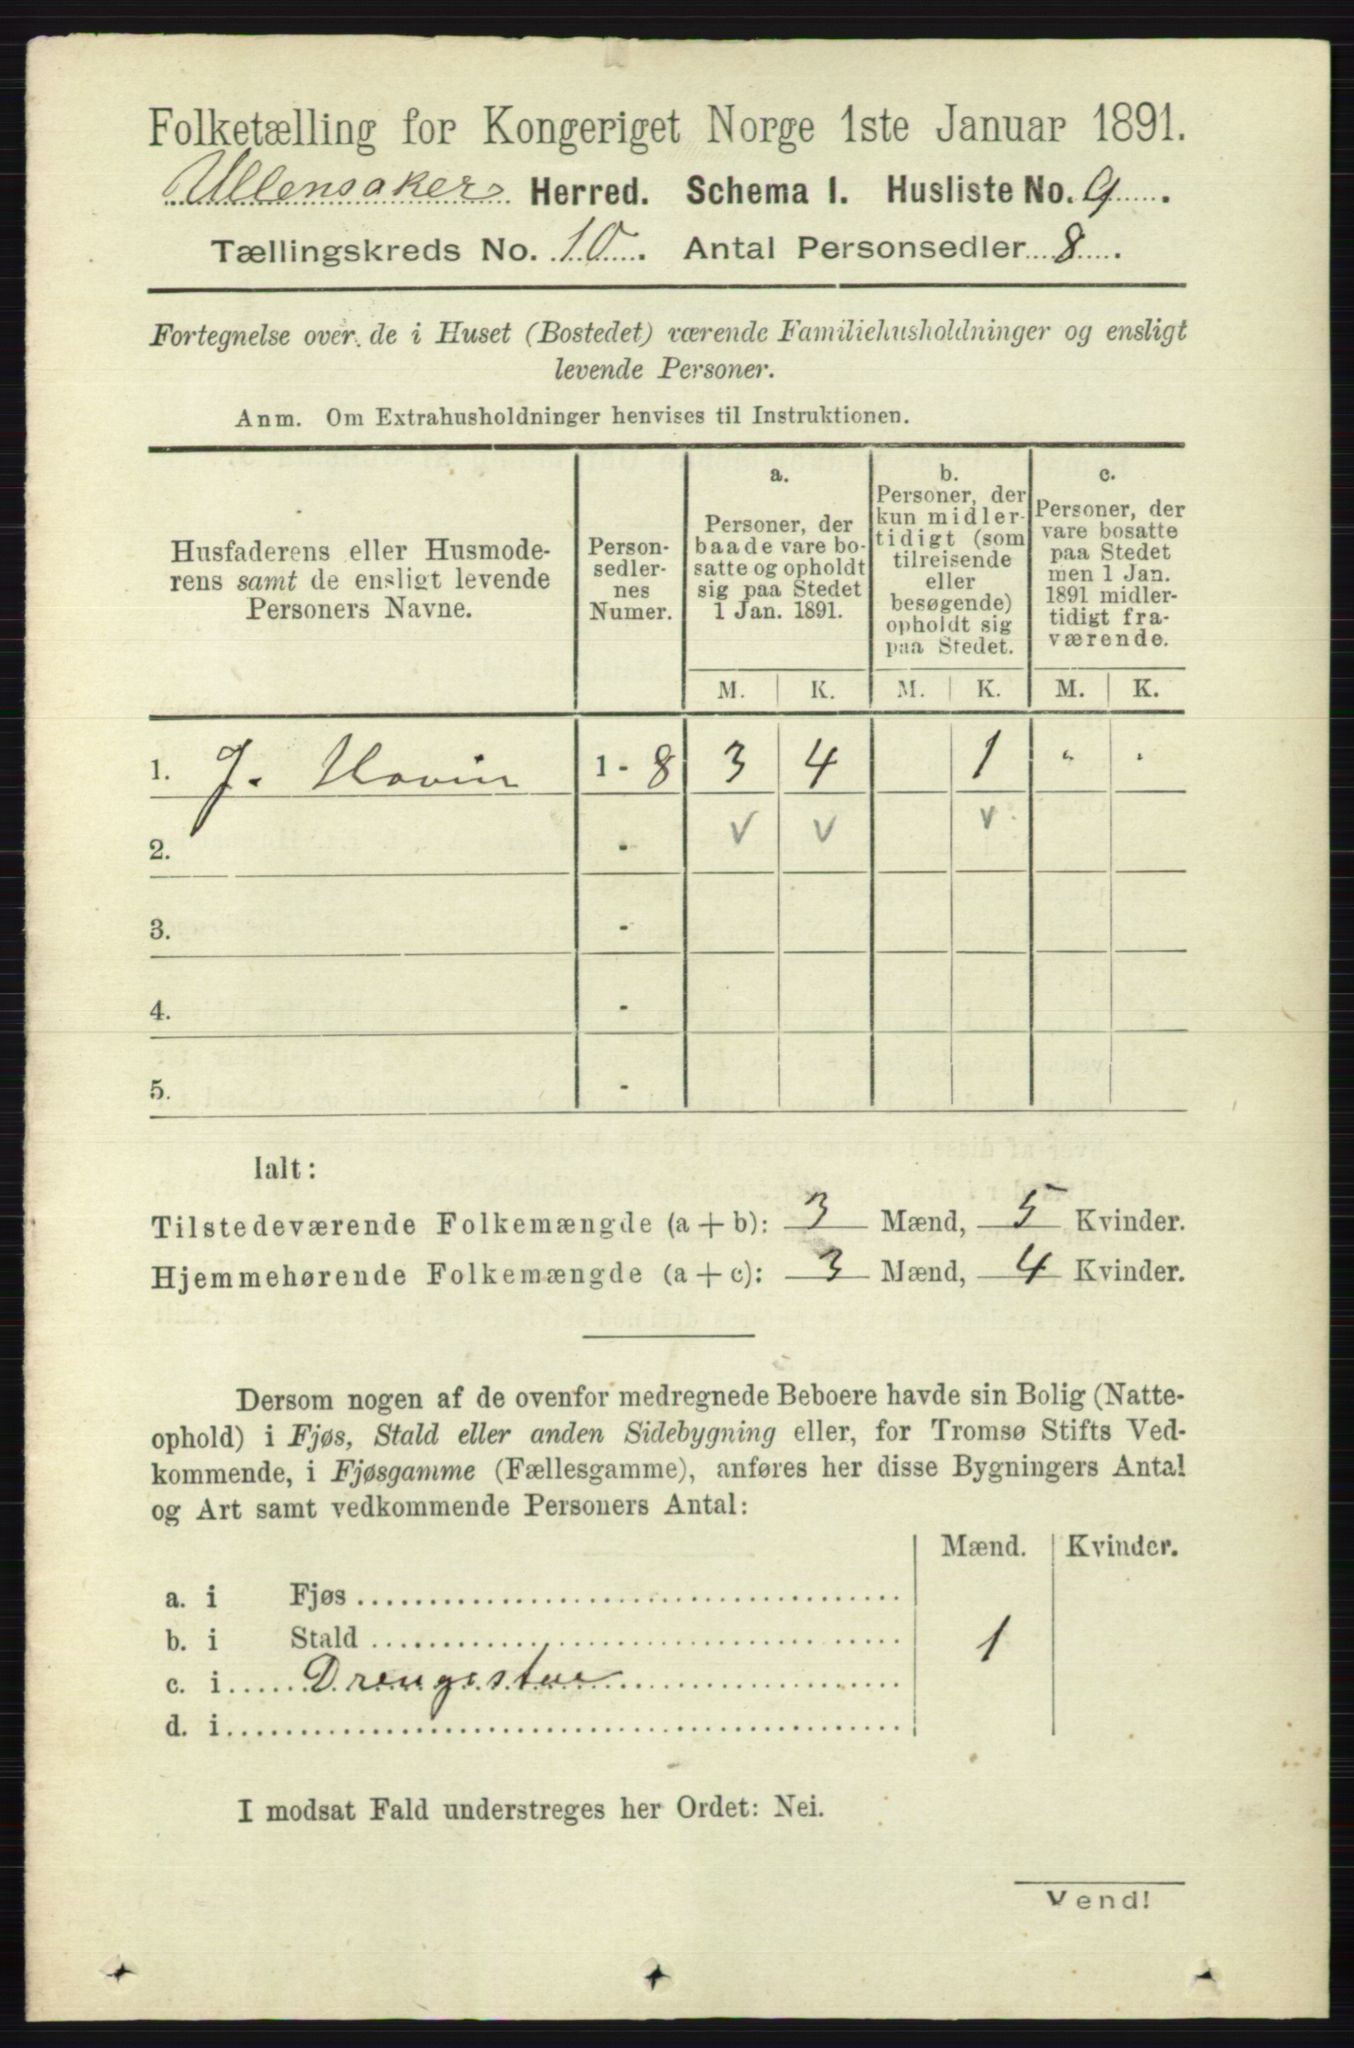 Folketælling for Kongeriget Norge 1ste Januar 1891.
Ullensakers Herred. Schema I. Husliste No. 9.
Tællingskreds No. 10. Antal Personsedler 8.
Fortegnelse over de i Huset (Bostedet) værende Familiehusholdninger og ensligt
levende Personer.
Anm. Om Extrahusholdninger henvises til Instruktionen.
Husfaderens eller Husmode-
rens samt de ensligt levende
Personers Navne.
Person-
sedler-
nes
Numer.
a.
Personer, der
baade vare bo-
satte og opholdt
sig paa Stedet
1 Jan. 1891.
b.
Personer, der
kun midler-
tidigt (som
tilreisende
eller
besøgende)
opholdt sig
paa Stedet.
c.
Personer, der
vare bosatte
paa Stedet
men 1 Jan.
1891 midler-
tidigt fra-
værende.
M. K. M. K. M. K.
1. J. Hovin 1 - 8 3 4 1 " "
2. - v v v
3. -
4. -
5. -
Ialt:
Tilstedeværende Folkemængde (a + b): 3 Mænd, 5 Kvinder.
Hjemmehørende Folkemængde (a + c): 3 Mænd, 4 Kvinder.
Dersom nogen af de ovenfor medregnede Beboere havde sin Bolig (Natte-
ophold) i Fjøs, Stald eller anden Sidebygning eller, for Tromsø Stifts Ved-
kommende, i Fjøsgamme (Fællesgamme), anføres her disse Bygningers Antal
og Art samt vedkommende Personers Antal:
Mænd. Kvinder.
a. i Fjøs
b. i Stald 1
c. i Drengestue
d. i
I modsat Fald understreges her Ordet: Nei.
Vend!